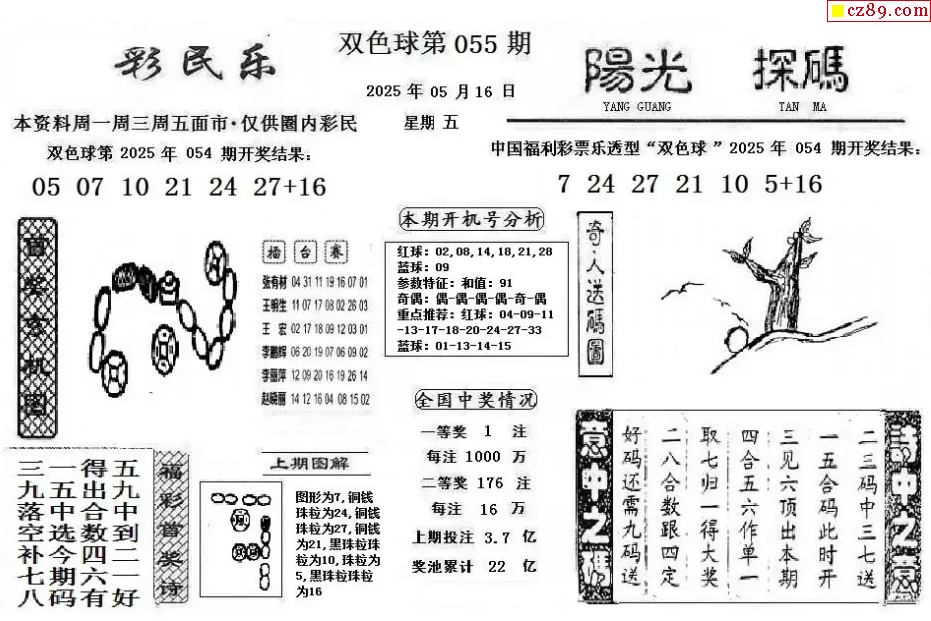 cz89.com
双色球第 055 期
2025 年 05 月 16 日
星期 五
彩民乐
陽光 探碼
YANG GUANG TAN MA
本资料周一周三周五面市·仅供圈内彩民
双色球第 2025 年 054 期开奖结果:
05 07 10 21 24 27+16
中国福利彩票乐透型“双色球 ”2025 年 054 期开奖结果:
7 24 27 21 10 5+16
擂台赛
张有材 04 31 11 19 16 07 01
王明生 11 07 17 08 02 26 03
王 宏 02 17 18 09 12 03 01
李鹏辉 06 20 19 07 06 09 02
李丽萍 12 09 20 16 19 26 14
赵晓丽 14 12 16 04 08 15 02
本期开机号分析
红球: 02,08,14,18,21,28
蓝球: 09
参数特征: 和值: 91
奇偶: 偶-偶-偶-偶-奇-偶
重点推荐: 红球: 04-09-11
-13-17-18-20-24-27-33
蓝球: 01-13-14-15
奇·人送碼圖
全国中奖情况
一等奖 1 注
每注 1000 万
二等奖 176 注
每注 16 万
上期投注 3.7 亿
奖池累计 22 亿
五九中到二一好
得出合数四六有
一五中选今期码
三九落空补七八
福彩首奖诗
上期图解
图形为7,铜钱
珠粒为24,铜钱
珠粒为27,铜钱
为21,黑珠粒珠
粒为10,珠粒为
5,黑珠粒珠粒
为16
诗中之意
二三码中三七送
一五合码此时开
三见六顶出本期
四合五六作单一
取七归一得大奖
二八合数跟四定
好码还需九码送
意中之